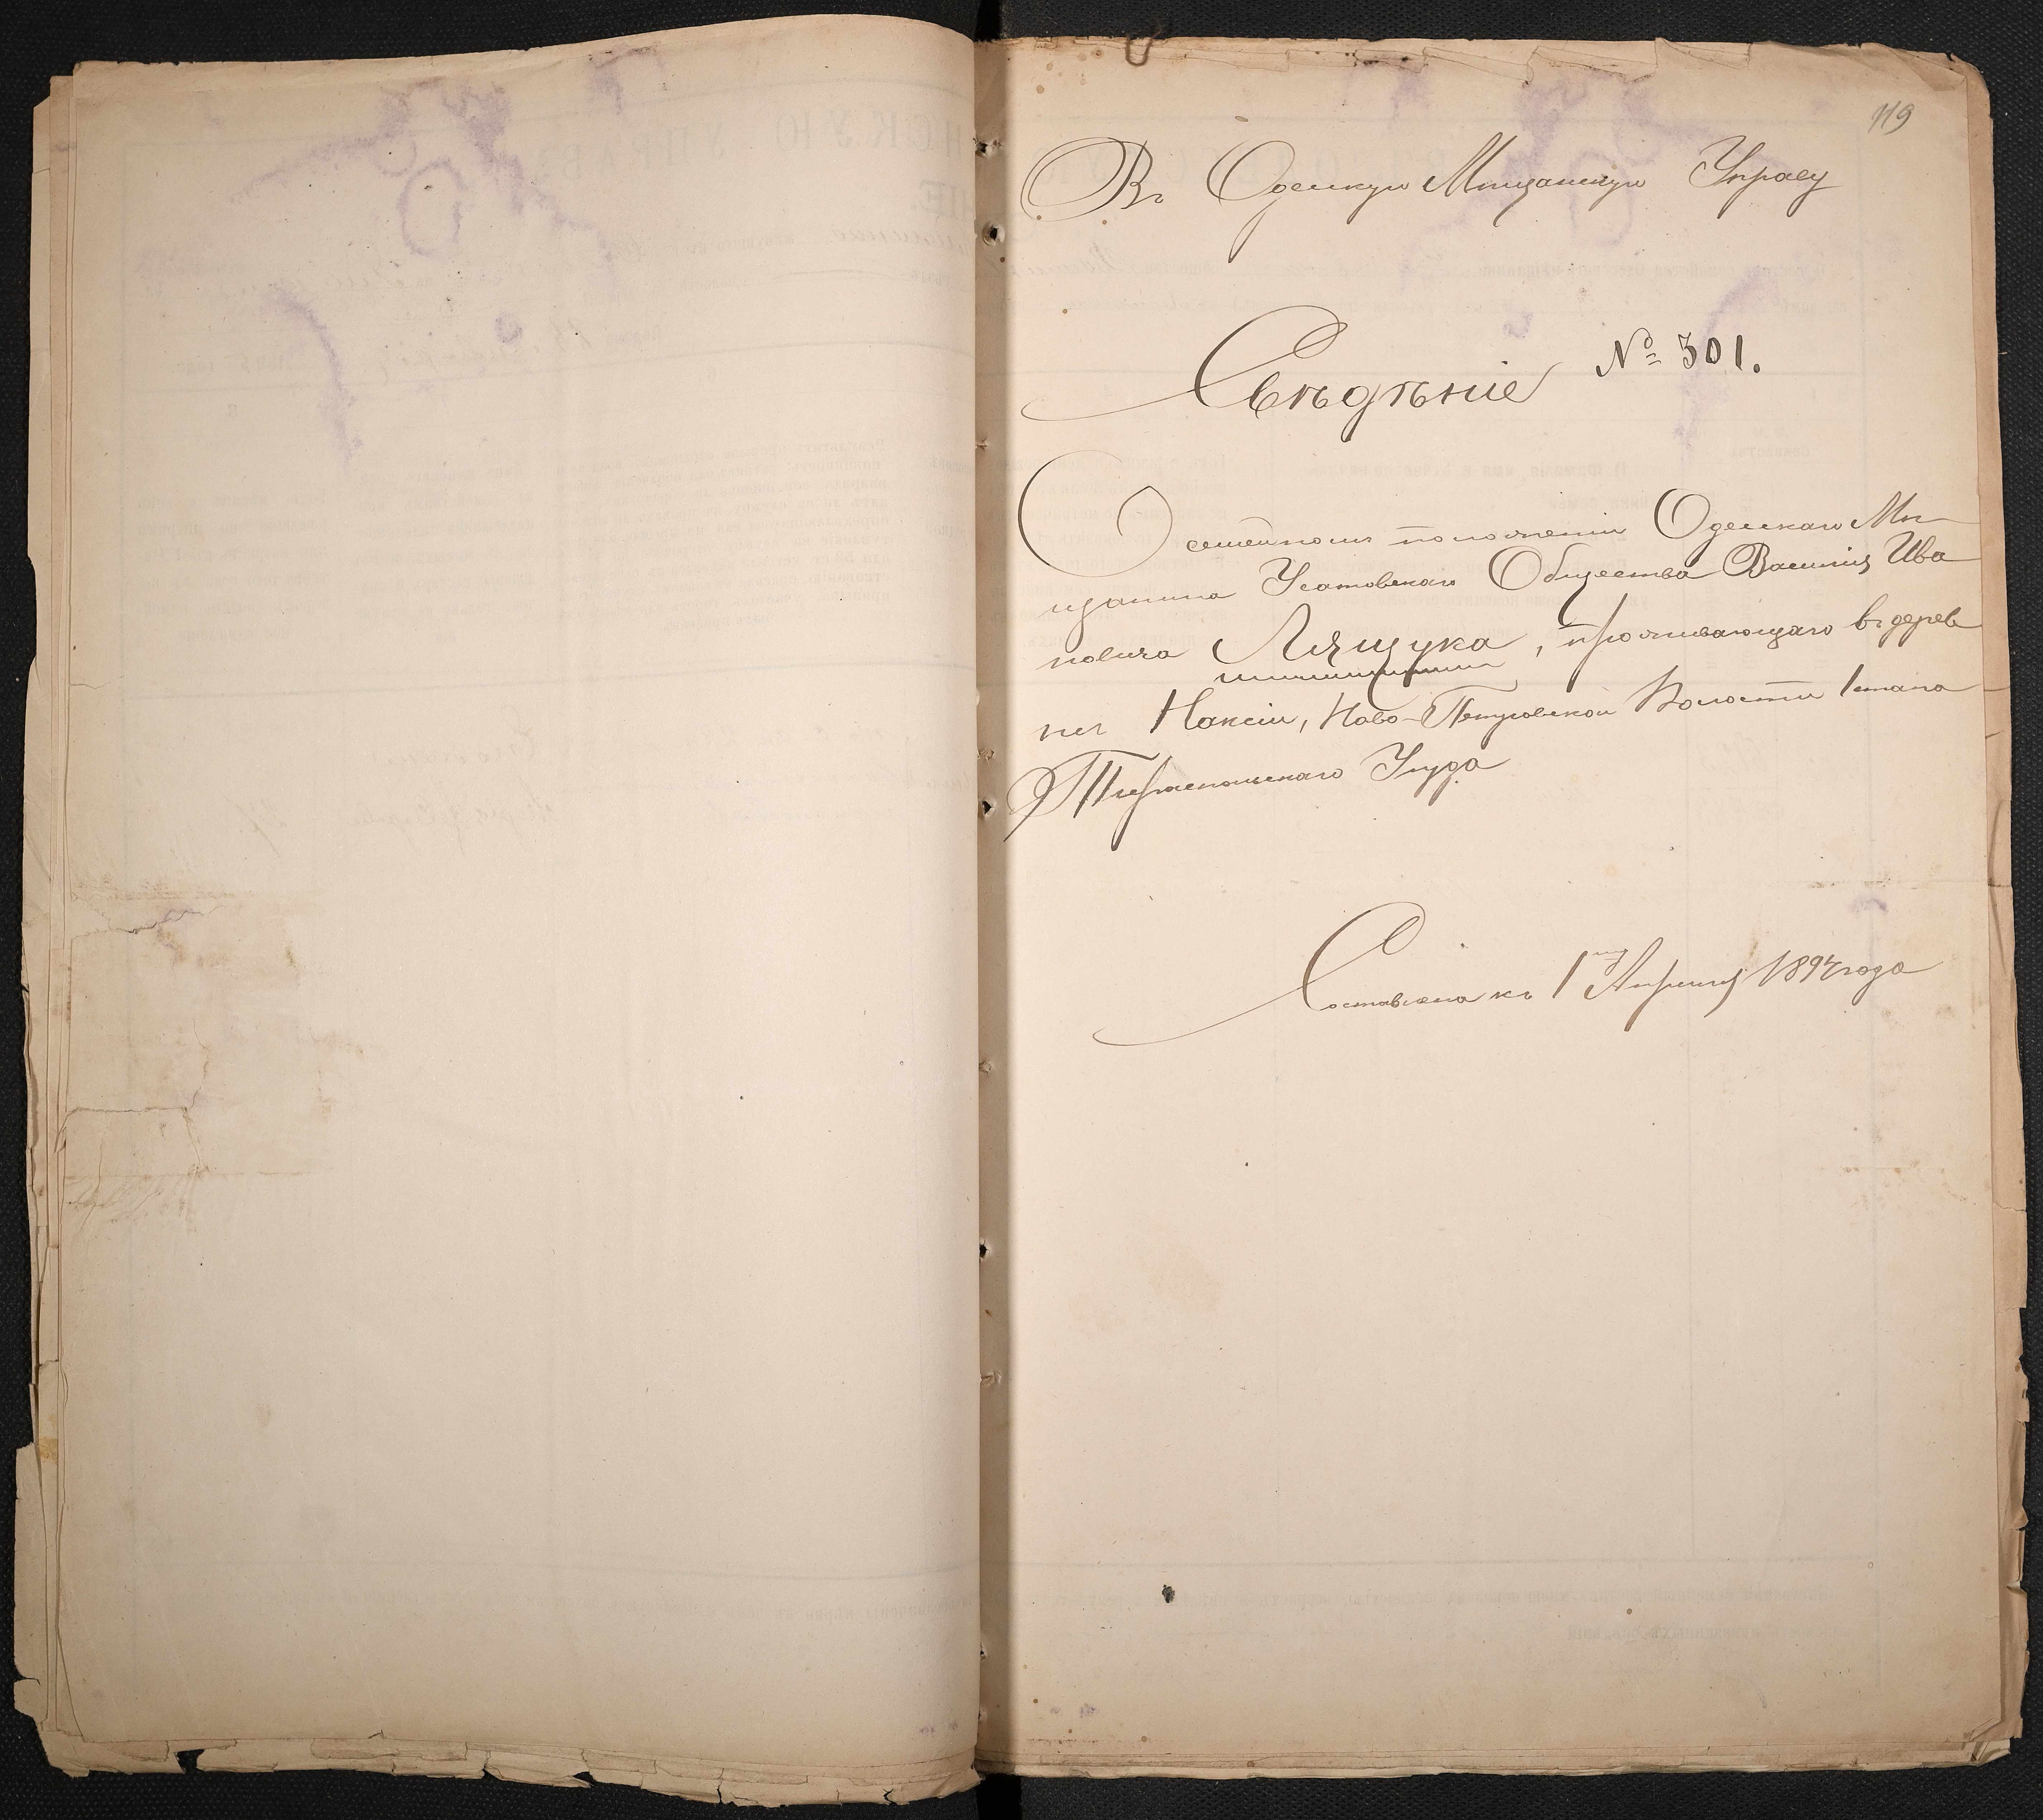 119
Въ Одесскую Мѣщанскую Управу
Свѣдѣніе № 301.
О семейномъ положеніи Одесскаго Мѣ-
щанина Усатовскаго Общества Василія Ива
новича Лящука, проживающаго въ дерев
нѣ Новo-Петровской Волости 1 стана
Тираспольскаго Уѣзда
Составлена къ 1му Апрѣля года